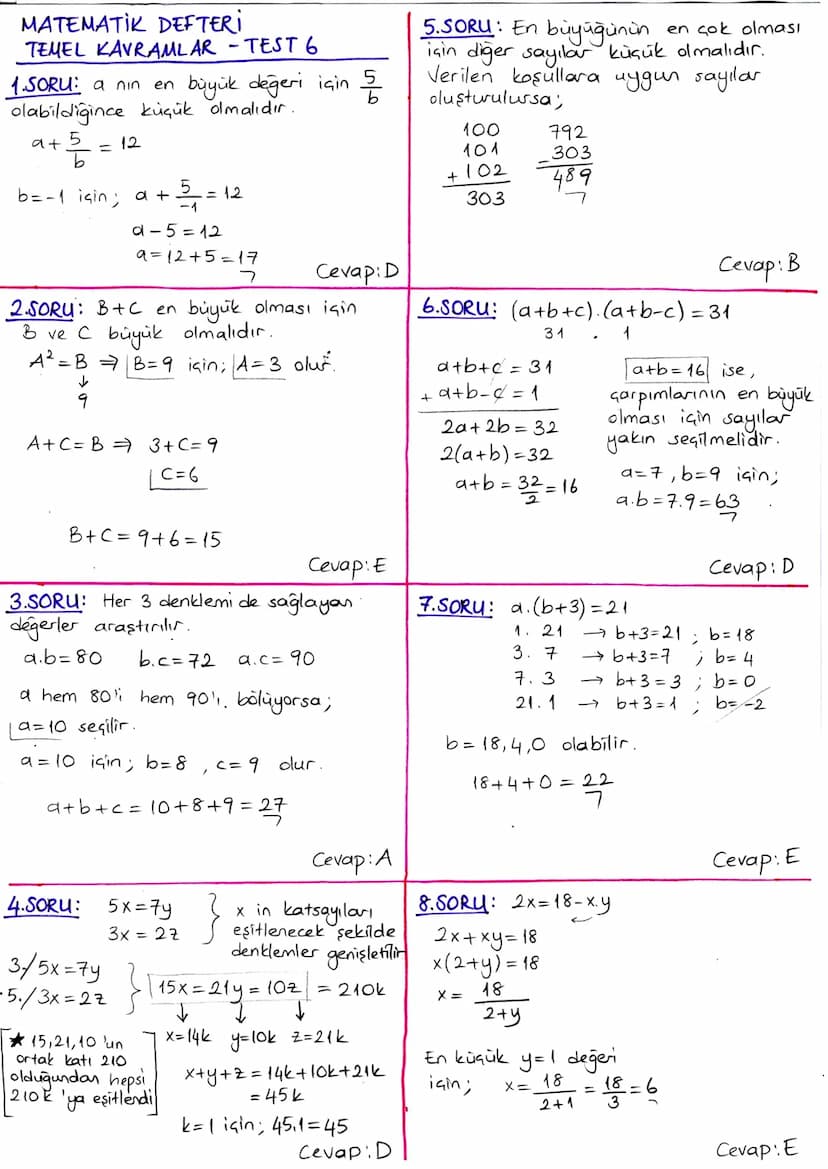 MATEMATİK DEFTERİ
TEMEL KAVRAMLAR - TEST 6
1.SORU: a nın en büyük değeri için 5/b
olabildiğince küçük olmalıdır.
a + 5/b = 12
b=-1 için; a + 5/-1 = 12
a - 5 = 12
a = 12 + 5 = 17
Cevap: D
2.SORU: B+C en büyük olması için
B ve C büyük olmalıdır.
A² = B ⇒ B=9 için; A=3 olur.
↓
9
A+C=B ⇒ 3+C=9
C=6
B+C = 9+6 = 15
Cevap: E
3.SORU: Her 3 denklemi de sağlayan
değerler araştırılır.
a.b=80 b.c=72 a.c=90
a hem 80'i hem 90'ı bölüyorsa;
a=10 seçilir.
a=10 için; b=8, c=9 olur.
a+b+c = 10+8+9 = 27
Cevap: A
4.SORU: 5x=7y
3x = 2z
x in katsayıları
eşitlenecek şekilde
denklemler genişletilir
3./5x=7y
5./3x=2z
15x = 21y = 10z = 210k
↓ ↓ ↓
x=14k y=10k z=21k
★ 15,21,10 'un
ortak katı 210
olduğundan hepsi
210k 'ya eşitlendi
x+y+z = 14k+10k+21k
= 45k
k=1 için; 45.1=45
Cevap: D
5.SORU: En büyüğünün en çok olması
için diğer sayılar küçük olmalıdır.
Verilen koşullara uygun sayılar
oluşturulursa;
100 792
101 -303
+102 489
303
Cevap: B
6.SORU: (a+b+c).(a+b-c) = 31
31 . 1
a+b+c = 31
+ a+b-c = 1
2a+2b = 32
2(a+b) = 32
a+b = 32/2 = 16
a+b=16 ise,
çarpımlarının en büyük
olması için sayılar
yakın seçilmelidir.
a=7, b=9 için;
a.b=7.9=63
Cevap: D
7.SORU: a.(b+3)=21
1. 21 → b+3=21 ; b=18
3. 7 → b+3=7 ; b=4
7. 3 → b+3=3 ; b=0
21. 1 → b+3=1 ; b=-2
b=18,4,0 olabilir.
18+4+0 = 22
Cevap: E
8.SORU: 2x=18-x.y
2x+xy=18
x(2+y)=18
x = 18/2+y
En küçük y=1 değeri
için; x = 18/2+1 = 18/3 = 6
Cevap: E